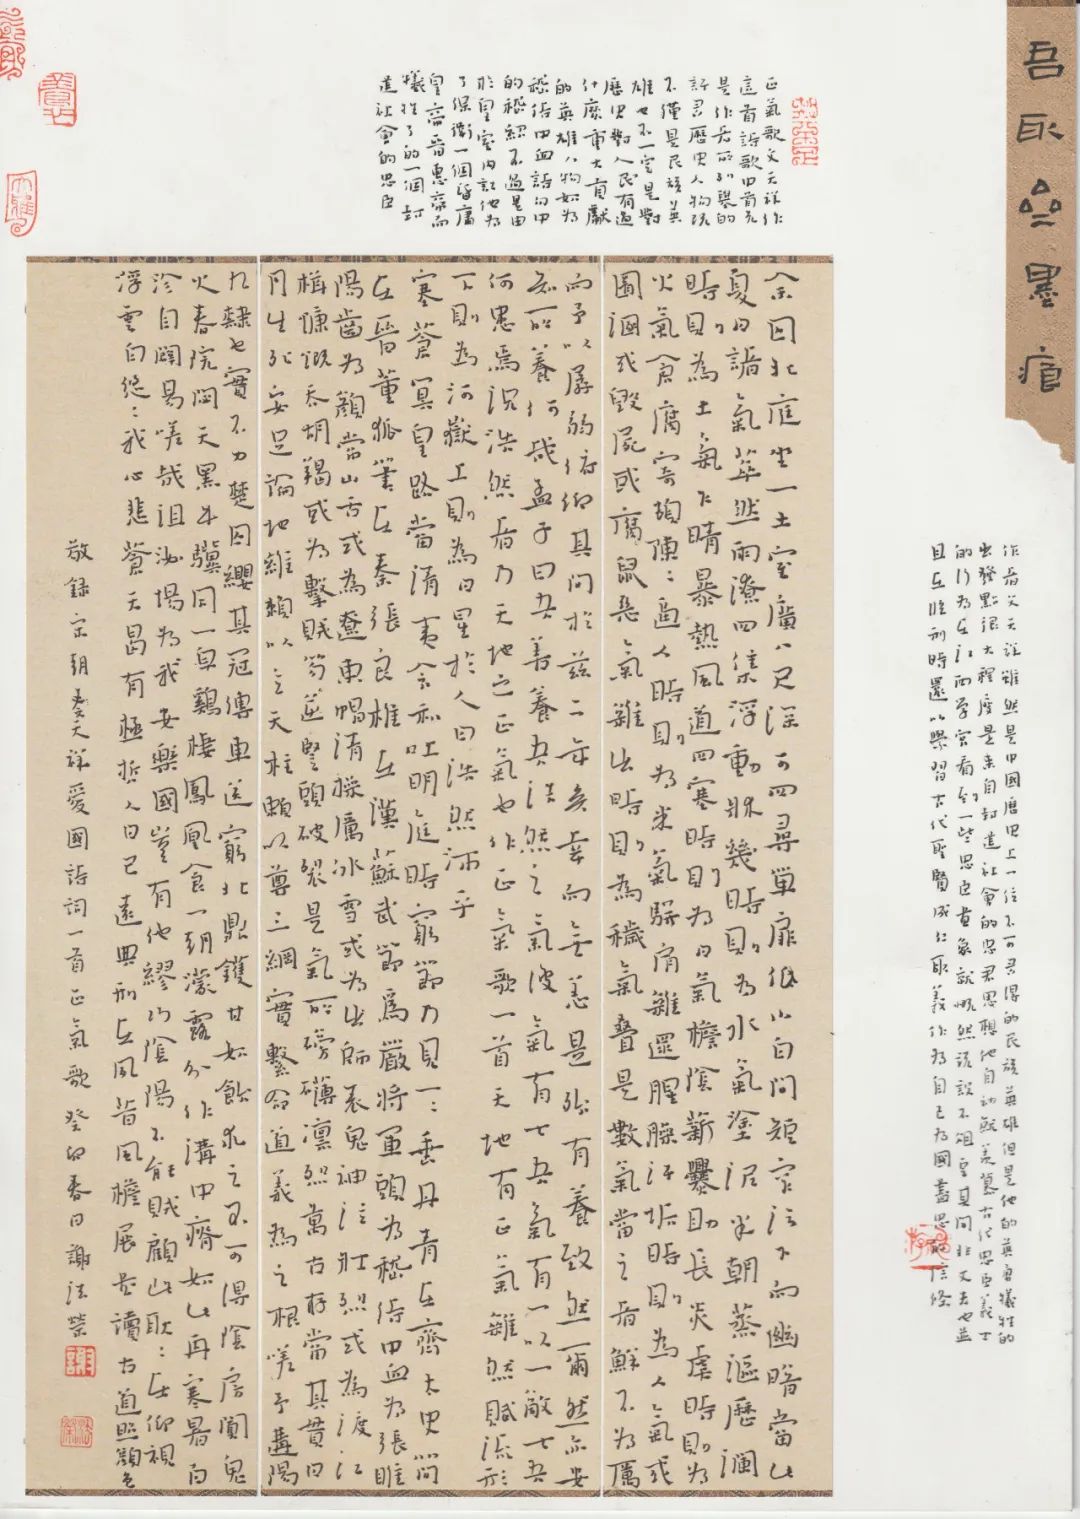 吾取墨痕
正氣歌文天祥作
這首詩歌中首先
是作者所列舉的
許君歷史人物既
不僅是民族英
雄也不一定是對
歷史對人民有過
什麼重大貢獻
的英雄人物如為
嵇侍中血詩句中
的嵇紹不過是由
於皇室內訌他為
了保衛一個昏庸
皇帝晉惠帝而
犧牲了的一個封
建社會的忠臣
余囚北庭坐一土室廣八尺深可四尋單扉低小白間短窄污下而幽暗當此
夏日諸氣萃然雨潦四集浮動牀幾時則為水氣塗泥半朝蒸漚歷瀾
時則為土氣乍晴暴熱風道四塞時則為日氣檐陰薪爨助長炎虐時則為
火氣倉腐寄頓陳〻逼人時則為米氣駢肩雜遝腥臊汗垢時則為人氣或
圊溷或毀屍或腐鼠惡氣雜出時則為穢氣疊是數氣當之者鮮不為厲
而予以孱弱俯仰其間於茲二年矣幸而無恙是殆有養致然爾然亦安
知所養何哉孟子曰吾善養吾浩然之氣彼氣有七吾氣有一以一敵七吾
何患焉況浩然者乃天地之正氣也作正氣歌一首天地有正氣雜然賦流形
下則為河嶽上則為日星於人曰浩然沛乎
塞蒼冥皇路當清夷含和吐明庭時窮節乃見一〻垂丹青在齊太史簡
在晉董狐筆在秦張良椎在漢蘇武節為嚴將軍頭為嵇侍中血為張睢
陽齒為顏常山舌或為遼東帽清操厲冰雪或為出師表鬼神泣壯烈或為渡江
楫慷慨吞胡羯或為擊賊笏逆豎頭破裂是氣所磅礴凜烈萬古存當其貫日
月生死安足論地維賴以立天柱賴以尊三綱實繫命道義為之根嗟予遘陽
九隸也實不力楚囚纓其冠傳車送窮北鼎鑊甘如飴求之不可得陰房闃鬼
火春院閟天黑牛驥同一皁雞棲鳳凰食一朝濛露分作溝中瘠如此再寒暑百
沴自闢易嗟哉沮洳場為我安樂國豈有他繆巧陰陽不能賊顧此耿〻在仰視
浮雲白悠〻我心悲蒼天曷有極哲人日已遠典刑在夙昔風檐展書讀古道照顏色
敬錄宋朝文天祥愛國詩詞一首正氣歌癸卯春日謝法榮
謝
作者文天祥雖然是中國歷史上一位不可多得的民族英雄但是他的英勇犧牲的
出發點很大程度是來自封建社會的忠君思想他自幼就羨慕古代忠臣義士
的行為在江西學宮看到一些忠臣畫象就慨然說設不俎豆其間非丈夫也並
且在臨刑時還以學習古代聖賢成仁取義作為自己為國盡忠的信條